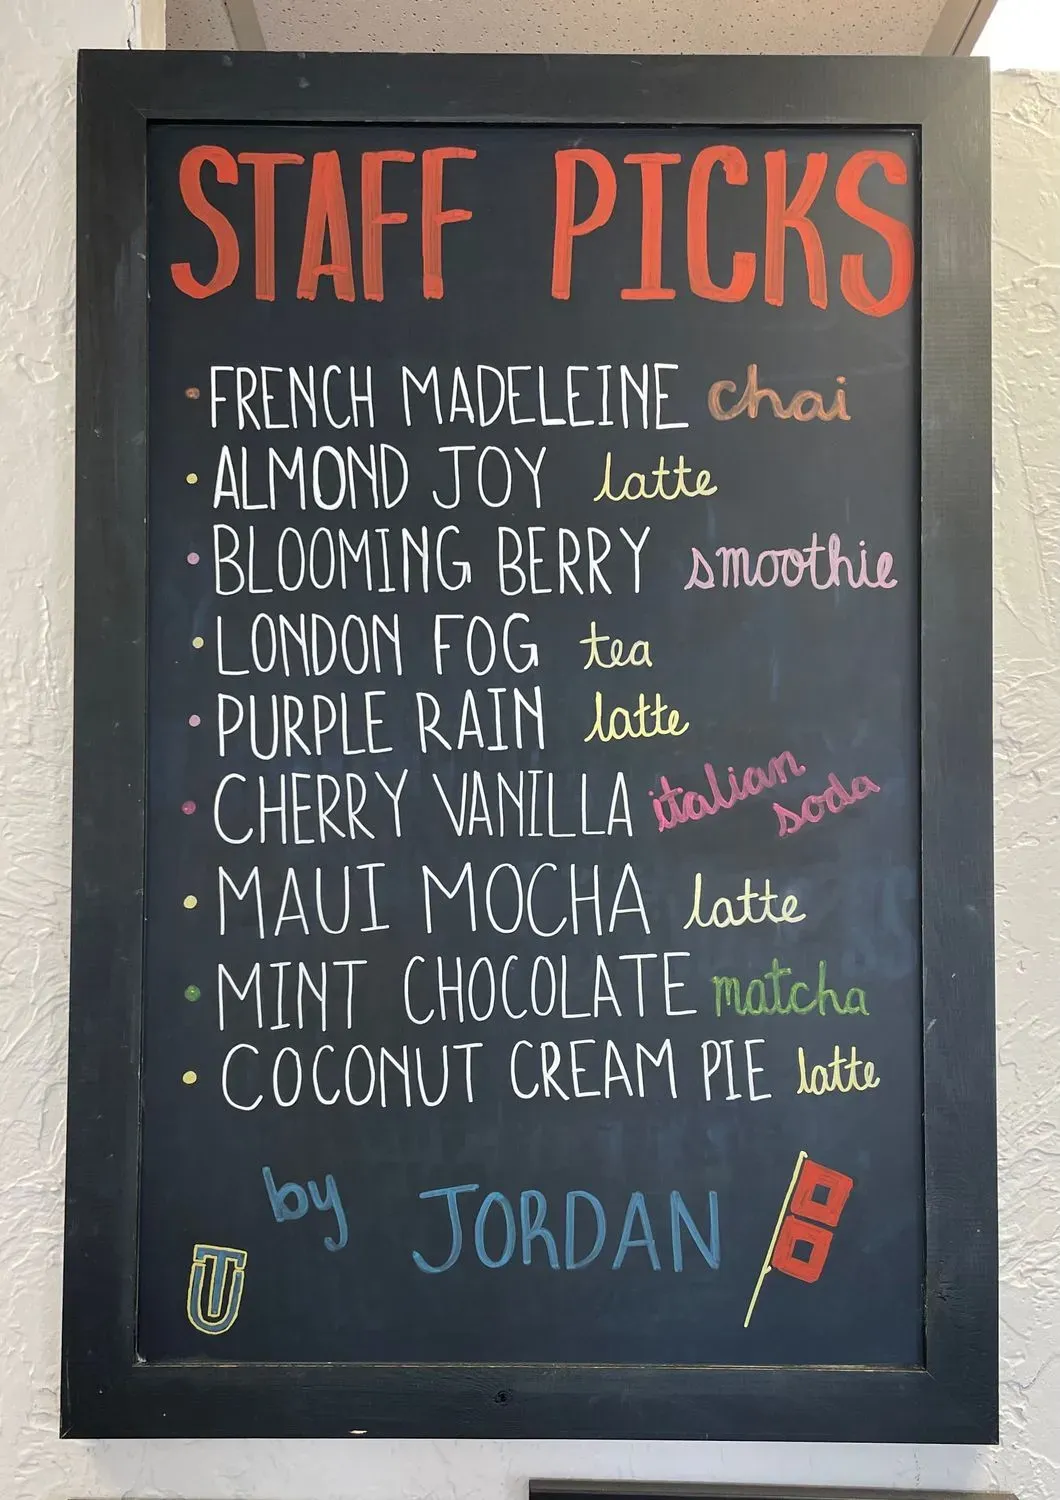 STAFF PICKS
• FRENCH MADELEINE chai
• ALMOND JOY latte
• BLOOMING BERRY smoothie
• LONDON FOG tea
• PURPLE RAIN latte
• CHERRY VANILLA italian soda
• MAUI MOCHA latte
• MINT CHOCOLATE matcha
• COCONUT CREAM PIE latte
by JORDAN
TU